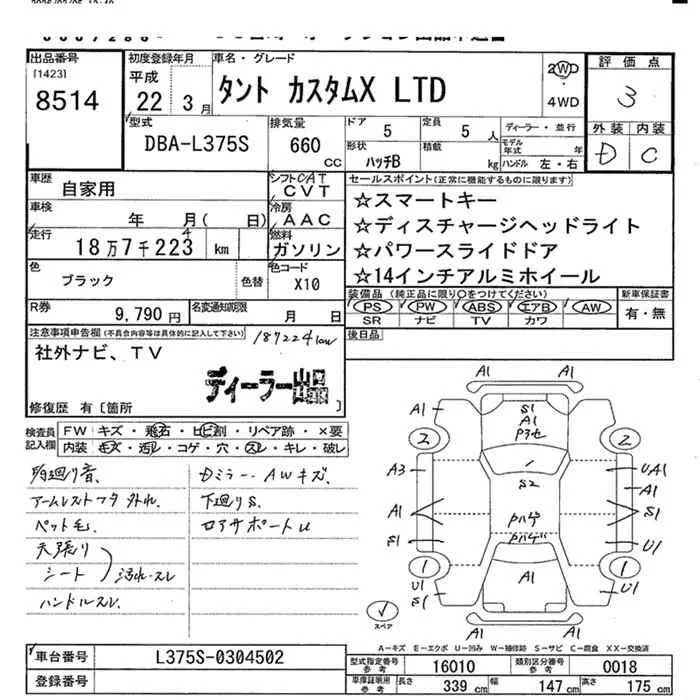 出品番号
[1423]
8514
初度登録年月
平成
22 3月
車名・グレード
タント カスタムX LTD
2WD
・
4WD
評価点
3
外装 内装
D C
型式
DBA-L375S
排気量
660
CC
ドア 5
定員 5 人
ディーラー・並行
形状
ハッチB
積載
kg
モデル年式 年
ハンドル 左・右
車歴
自家用
シフト CAT
CVT
車検
年 月( 日)
冷房
AAC
走行
18万7千223 km
4
燃料
ガソリン
色
ブラック
色替
色コード
X10
R券
9,790円
名変通知期限
月 日
セールスポイント(正常に機能するものに限ります)
☆スマートキー
☆ディスチャージヘッドライト
☆パワースライドドア
☆14インチアルミホイール
装備品(純正品に限り○をつけてください)
PS PW ABS エアB AW
SR ナビ TV カワ
新車保証書
有・無
後日品
注意事項申告欄(不具合内容等は具体的に記入して下さい)
187224km
社外ナビ、TV
ディーラー出品
修復歴 有〔箇所 〕
検査員
記入欄
FW キズ・飛石・ヒビ割・リペア跡・×要
内装 モズ・汚レ・コゲ・穴・スレ・キレ・破レ
アームレストフタ外れ
ペット毛
天張り
シート
汚れスレ
ハンドルスレ
Dミラー・AWキズ
下廻りS
ロアサポートU
A1 A1
A1 S1 A1
A1
2 2
A3 S2 UA1
A1
A1 S1
Pハゲ
S1 Pハゲ U1
1 1
U1 A1 U1
S1 S1
スペア
A1
A-キズ E-エクボ U-凹み W-補修跡 S-サビ C-腐食 XX-交換済
車台番号
L375S-0304502
登録番号
型式指定番号
参考
16010
類別区分番号
参考
0018
車庫証明用
参考
長さ 339 cm
幅 147 cm
高さ 175 cm